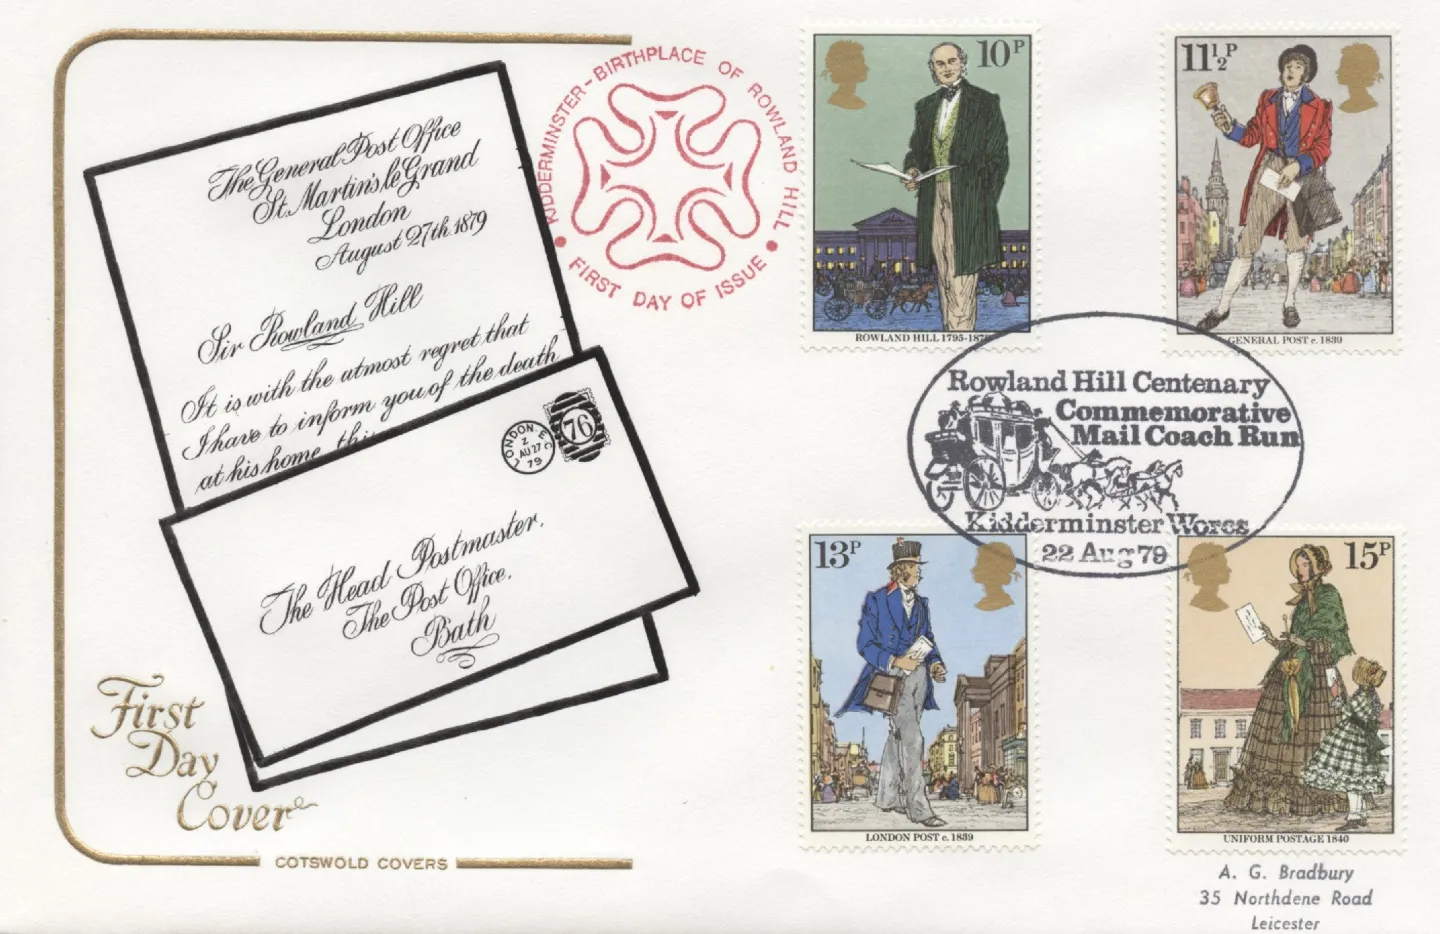 The General Post Office
St. Martin's le Grand
London
August 27th. 1879
Sir Rowland Hill
It is with the utmost regret that
I have to inform you of the death
at his home, this
LONDON. E.C
Z
AU 27
79
76
The Head Postmaster,
The Post Office,
Bath
First
Day
Cover
COTSWOLD COVERS
KIDDERMINSTER - BIRTHPLACE OF ROWLAND HILL
• FIRST DAY OF ISSUE •
10P
ROWLAND HILL 1795-1879
11½P
GENERAL POST c. 1839
Rowland Hill Centenary
Commemorative
Mail Coach Run
Kidderminster Worcs
22 Aug 79
13P
LONDON POST c. 1839
15P
UNIFORM POSTAGE 1840
A. G. Bradbury
35 Northdene Road
Leicester